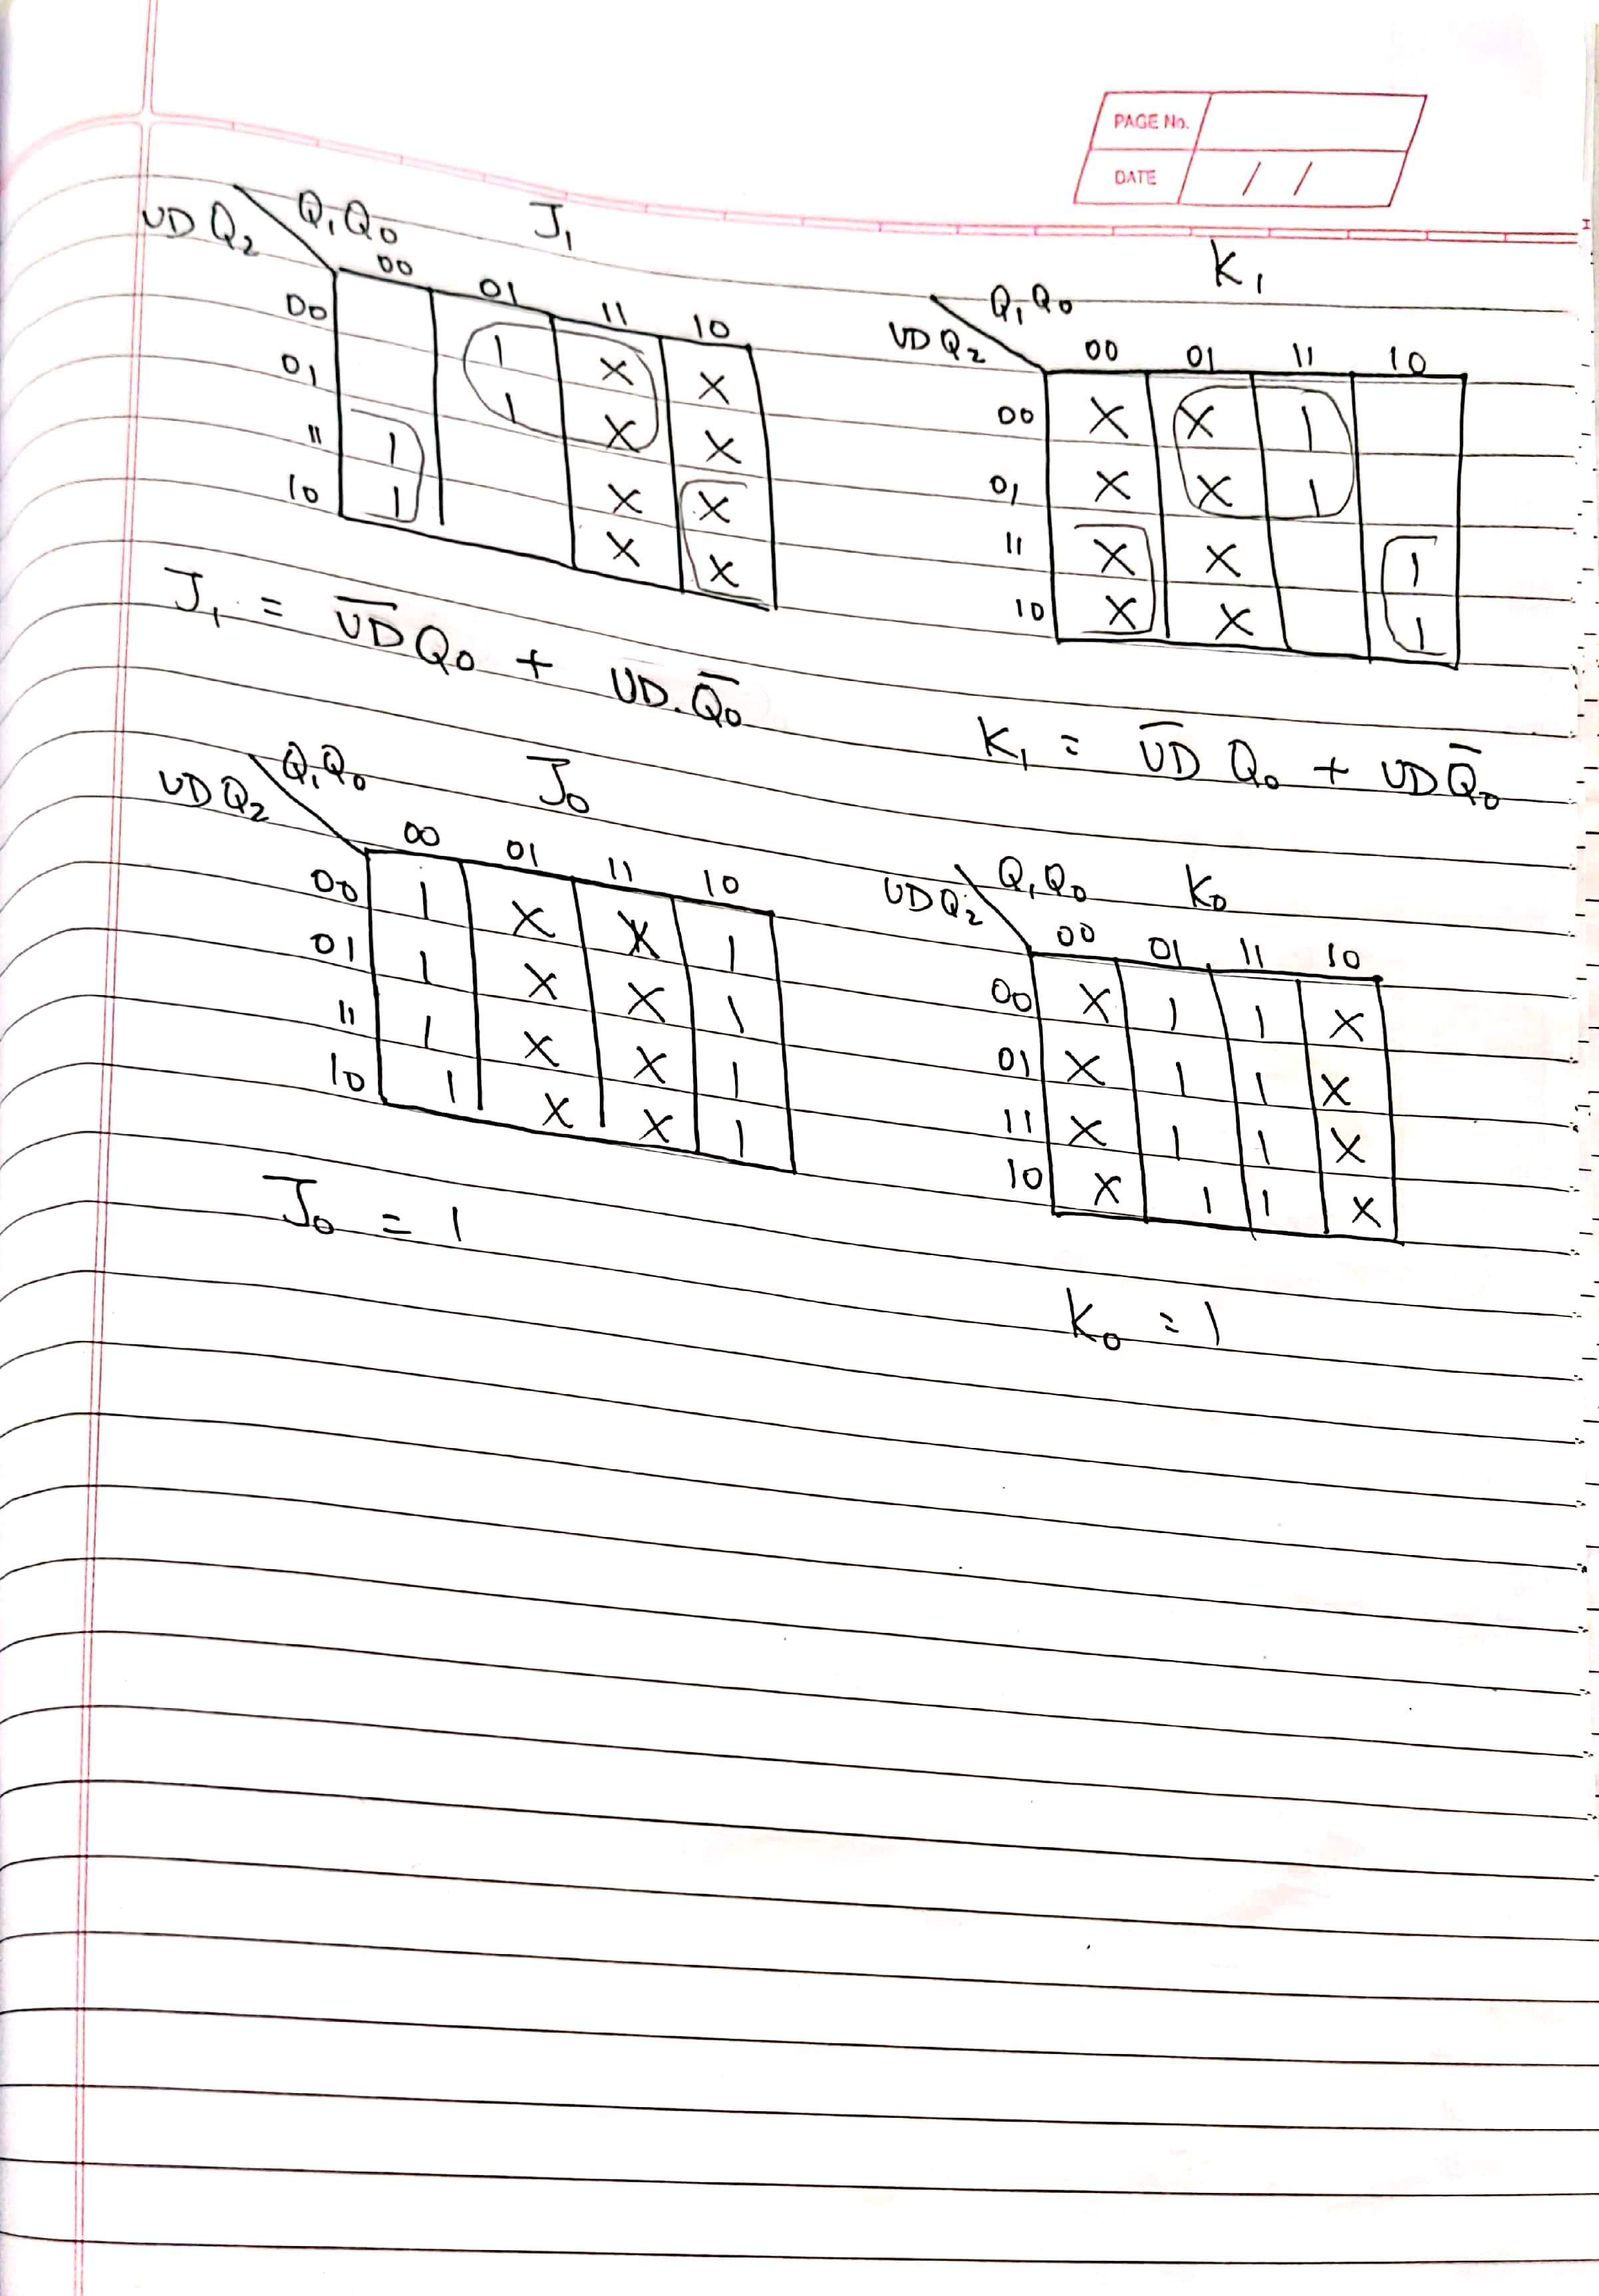 PAGE No.
DATE / /
UD Q₂ \ Q₁Q₀ J₁
00 01 11 10
00 1 X X
01 1 X X
11 1 X X
10 1 X X
J₁ = U̅D̅ Q₀ + UD.Q̅₀
UD Q₂ \ Q₁Q₀ K₁
00 01 11 10
00 X X 1
01 X X 1
11 X X 1
10 X X 1
K₁ = U̅D̅ Q₀ + UD Q̅₀
UD Q₂ \ Q₁Q₀ J₀
00 01 11 10
00 1 X X 1
01 1 X X 1
11 1 X X 1
10 1 X X 1
J₀ = 1
UD Q₂ \ Q₁Q₀ K₀
00 01 11 10
00 X 1 1 X
01 X 1 1 X
11 X 1 1 X
10 X 1 1 X
K₀ = 1